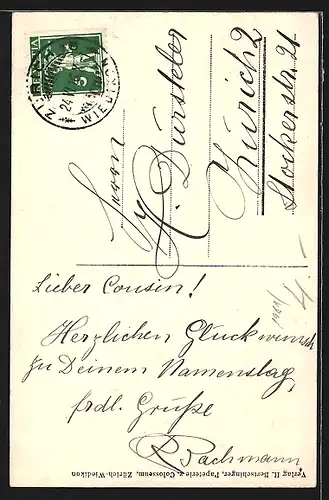 HELVETIA
5
WIEDIKON
24
Herrn
H. Dürsteler
Zürich 2
Stockerstr. 21
4.–
Lieber Cousin!
Herzlichen Glückwunsch
zu Deinem Namenstag,
frdl. Grüße
R. Bachmann.
Verlag H. Bertschinger, Papeterie z. Colosseum, Zürich-Wiedikon